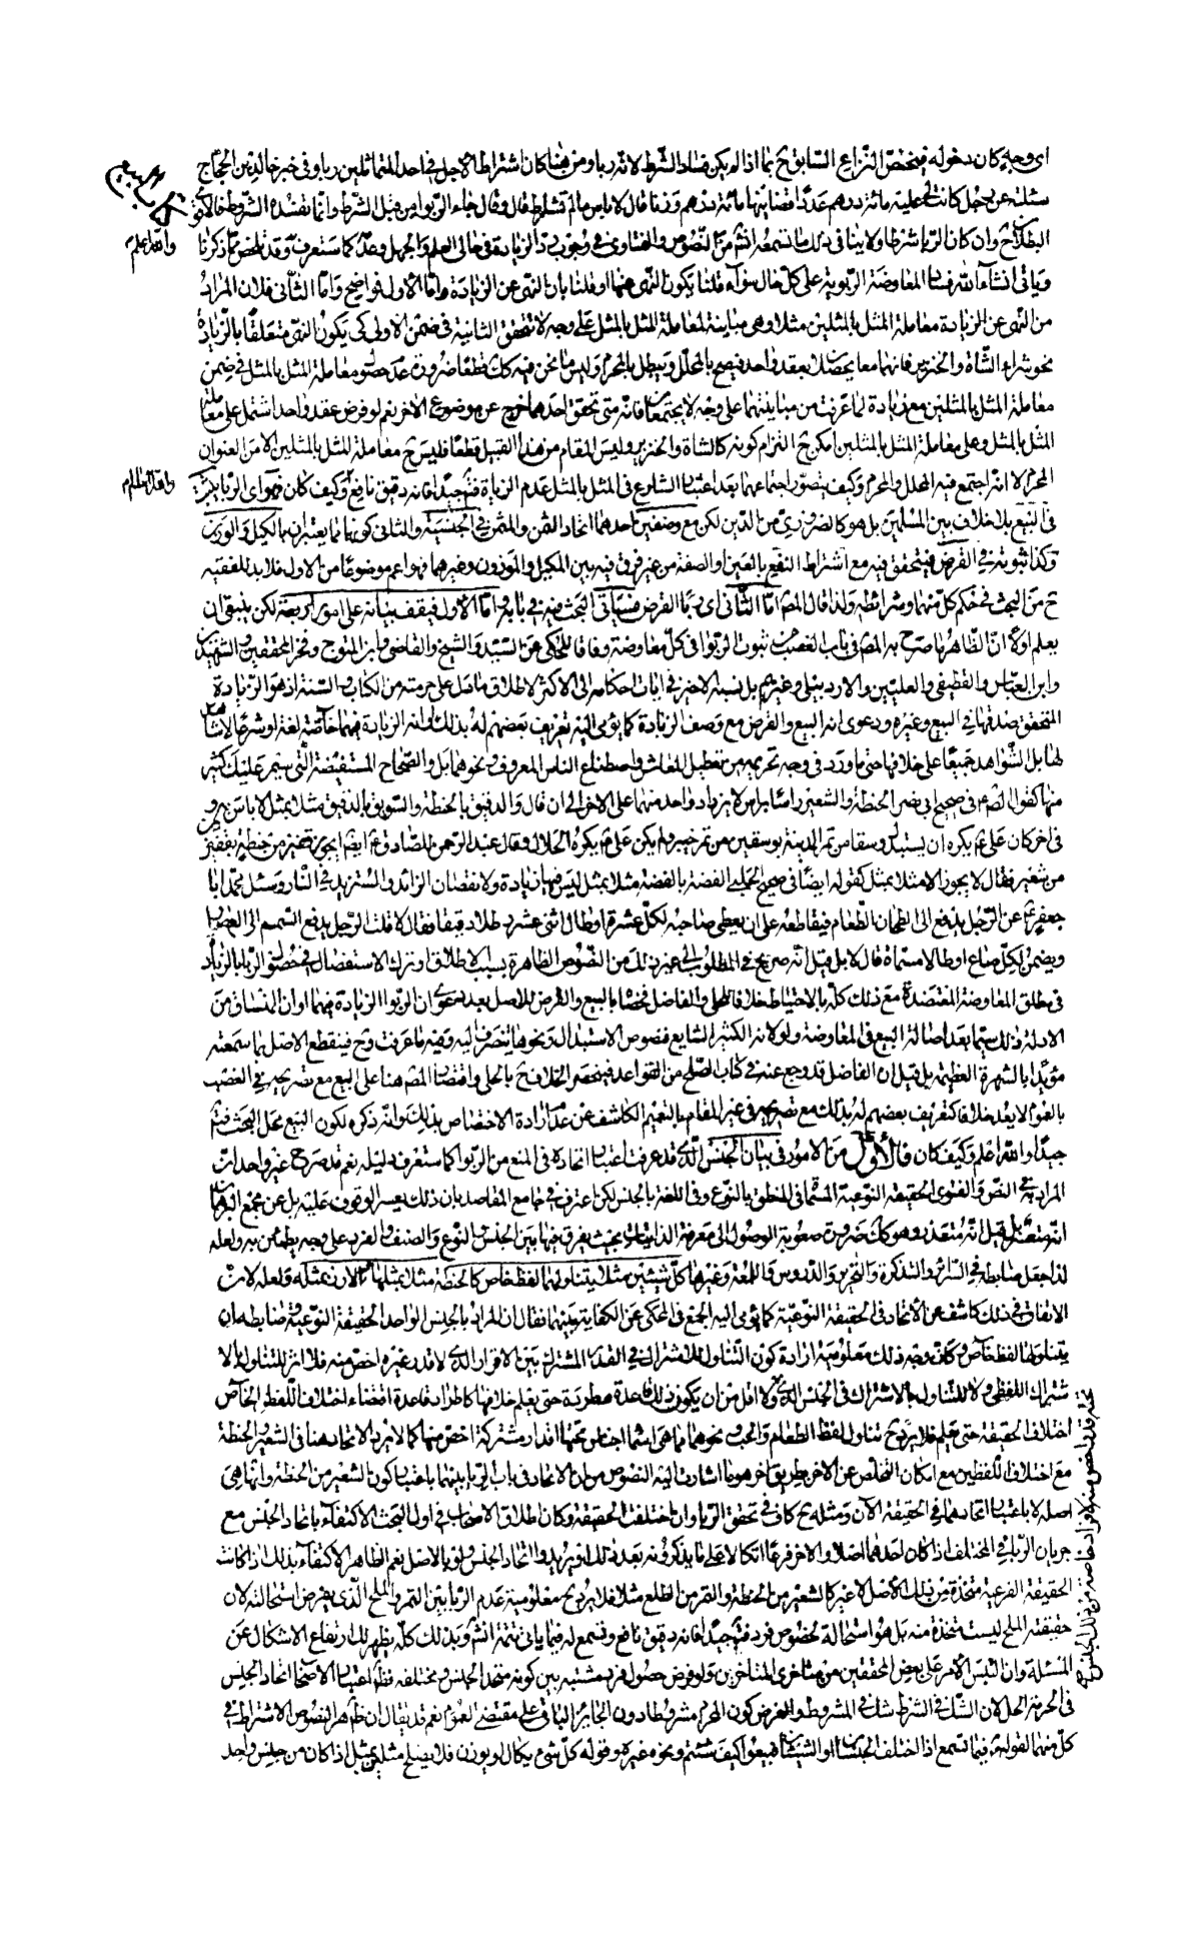 اى وجه كان دخوله فيختص النزاع السابق ح بما اذا لم يكن فساد الشرط لانه ربا ومن هنا كان اشتراط الاجل فى احد المتماثلين ربا وفى خبر خالد بن الحجاج
سئلته عن رجل كانت لى عليه مائة درهم عددا قضانيها مائة درهم وزنا قال لا باس ما لم تشترط قال وقال جاء الربوا من قبل الشرط وانما تفسده الشروط فالاقوى
كتاب البيع
البطلان ح وان كان الربا شرطا ولا ينافى ذلك ما تسمعه انش من النصوص والفتاوى فى وجوب رد الزيادة فى حالى العلم والجهل وعدمه كما ستعرف وقد تلخص مما ذكرنا
والله اعلم
وياتى انشاء الله فساد المعاوضة الربوية على كل حال سواء قلنا يكون النهى عنها او قلنا بان النهى عن الزيادة واما الاول فواضح واما الثانى فلان المراد
من النهى عن الزيادة معاملة المثل بالمثلين مثلا وهى مباينة لمعاملة المثل بالمثل على وجه لا تتحقق الثانية فى ضمن الاولى كى يكون النهى متعلقا بالزيادة
نحو شراء الشاة والخنزير فانهما معا يحصلان بعقد واحد فيصح بالمحلل ويبطل بالمحرم وليس ما نحن فيه كك قطعا ضرورة عدم حصول معاملة المثل بالمثل فى ضمن
معاملة المثل بالمثلين مع زيادة لما عرفت من مباينتهما على وجه لا يجتمعان فانه متى تحقق احدهما خرج عن موضوع الاخر نعم لو فرض عقد واحد اشتمل على معاملة
المثل بالمثل وعلى معاملة المثل بالمثلين امكن ح التزام كونه كالشاة والخنزير وليس المقام من هذا القبيل قطعا فليس ح معاملة المثل بالمثلين الا من العنوان
المحرم لا انه اجتمع فيه المحلل والمحرم وكيف يتصور اجتماعهما بعد اعتبار الشارع فى المثل بالمثل عدم الزيادة فتم جيدا فانه دقيق نافع وكيف كان فهو اى الربا يثبت
والله العالم
فى البيع بلا خلاف بين المسلمين بل هو كالضرورى من الدين لكن مع وصفين احدهما اتحاد الثمن والمثمن فى الجنسية والثانى كونهما مما يعتبران بالكيل والوزن
وكذا ثبوته فى القرض فيتحقق فيه مع اشتراط النفع بالعين او الصفة من غير فرق فيه بين المكيل والموزون وغيرهما فهو اعم موضوعا من الاول فلا بد للفقيه
ح من البحث فى حكم كل منهما وشرائطه ولذا قال المص اما الثانى اى ربا القرض فسياتى البحث فيه فى بابه واما الاول فيقف بيانه على امور اربعة لكن ينبغى ان
يعلم اولا ان الظاهر ما صرح به المص فى باب الغصب من ثبوت الربوا فى كل معاوضة وفاقا للمحكى عن السيد والشيخ والقاضى وابن المتوج وفخر المحققين والشهيدين
وابن العباس والقطيفى والعليين والاردبيلى وغيرهم بل نسبه الاخير فى ايات احكامه الى الاكثر لاطلاق ما دل على حرمته من الكتاب والسنة اذ هو الزيادة
المتحقق صدقها فى البيع وغيره ودعوى انه البيع والقرض مع وصف الزيادة كما يومى اليه تعريف بعضهم له بذلك او انه الزيادة فيهما خاصة لغة او شرعا لا شاهد
لها بل الشواهد جميعا على خلافها حتى ما ورد فى وجه تحريمه من تعطيل المعاش واصطناع الناس المعروف ونحوهما بل والصحاح المستفيضة التى ستمر عليك كثير
منها كقول الصم فى صحيح ابى بصير الحنطة والشعير راسا براس لا يزداد واحد منهما على الاخر الى ان قال والدقيق بالحنطة والسويق بالدقيق مثلا بمثل لا باس به و
فى اخر كان على ع يكره ان يستبدل وسقا من تمر المدينة بوسقين من تمر خيبر ولم يكن على ع يكره الحلال وقال عبد الرحمن للصادق ع ايض ايجوز قفيز من حنطة بقفيزين
من شعير فقال لا يجوز الا مثلا بمثل كقوله ايضا فى صحيح الحلبى الفضة بالفضة مثلا بمثل ليس فيها زيادة ولا نقصان الزائد والمستزيد فى النار وسئل محمد ابا
جعفر ع عن الرجل يدفع الى الطحان الطعام فيقاطعه على ان يعطى صاحبه لكل عشرة ارطال اثنى عشر رطلا دقيقا فقال لا قلت الرجل يدفع السمسم الى العصار
ويضمن لكل صاع ارطالا مسماة قال لا بل قيل انه صريح فى المطلوب الى غير ذلك من النصوص الظاهرة بسبب الاطلاق او ترك الاستفصال فى حصول الربا بالزيادة
فى مطلق المعاوضة المعتضدة مع ذلك كله بالاحتياط خلافا للحلى والفاضل فخصاه بالبيع والقرض للاصل بعد دعوى ان الربوا الزيادة فيهما او ان المنساق من
الادلة ذلك سيما بعد اصالة البيع فى المعاوضة ولو لانه الكثير الشايع فنصوص الاستبدال ونحوها ينصرف اليه وفيه ما عرفت وح فينقطع الاصل بما سمعته
مؤيدا بالشهرة العظيمة بل قيل ان الفاضل قد رجع عنه فى كتاب الصلح من القواعد فينحصر الخلاف ح بالحلى واقتصار المص هنا على البيع مع تصريحه فى الغصب
بالعموم لا يعد خلافا كتعريف بعضهم له بذلك مع تصريحه فى غير المقام بالتعميم الكاشف عن عدم ارادة الاختصاص بذلك وانه ذكره لكون البيع محل البحث فتم
جيدا والله اعلم وكيف كان فالاول من الامور فى بيان الجنس الذى قد عرفت اعتبار اتحاده فى المنع من الربوا كما ستعرف دليله نعم قد صرح غير واحد ان
المراد به فى النص والفتوى الحقيقة النوعية المسماة فى المنطق بالنوع وفى اللغة بالجنس لكن اعترف فى جامع المقاصد بان ذلك يعسر الوقوف عليه بل عن مجمع البرهان
انه متعسر بل قيل انه متعذر وهو كك ضرورة صعوبة الوصول الى معرفة الذاتيات بحيث يفرق فيها بين الجنس والنوع والصنف والفرد على وجه يطمئن به ولعله
لذا جعل ضابطه فى السرائر والتذكرة والتحرير والدروس واللمعة وغيرها كل شيئين مثلا يتناولهما لفظ خاص كالحنطة مثلا بمثلها والارز بمثله ولعله لان
الاتفاق فى ذلك كاشف عن الاتحاد فى الحقيقة النوعية كما يومى اليه الجمع فى المحكى عن الكفاية بينهما فقال ان المراد بالجنس الواحد الحقيقة النوعية وضابطه ان
يتناولها لفظ خاص وكان وجه ذلك معلومية ارادة كون التناول للاشتراك فى القدر المشترك بين الافراد الذى لا قدر غيره اخص منه فلا اثر للتناول بالا
شتراك اللفظى ولا للتناول بالاشتراك فى الجنس الذى ولا اقل من ان يكون ذلك قاعدة مطردة حتى يعلم خلافها كاطراد قاعدة اقتضاء اختلاف اللفظ الخاص
اختلاف الحقيقة حتى يعلم فلا يرد ح تناول لفظ الطعام والحب ونحوهما مما هى اسماء اجناس تحتها اقدار مشتركة اخص منها كما لا يرد الاتحاد هنا فى الشعير والحنطة
مع اختلاف اللفظين مع امكان التخلص عن الاخر بطريق اخر هو ما اشارت اليه النصوص من ان الاتحاد فى باب الربا بينهما باعتبار كون الشعير من الحنطة وانها هى
اصله لا باعتبار اتحادهما فى الحقيقة الآن ومثله ح كاف فى تحقق الربا وان اختلفت الحقيقة وكان اطلاق الاصحاب فى اول البحث الاكتفاء باتحاد الجنس مع
جريان الربا فى المختلف اذا كان احدهما اصلا والاخر فرعا اتكالا على ما يذكرونه بعد ذلك او يريدوا اتحاد الجنس ولو بالاصل نعم الظاهر الاكتفاء بذلك اذا كانت
الحقيقة الفرعية متخذة من ذلك الاصل لا غير كالشعير من الحنطة والتمر من الطلع مثلا فلا يرد ح معلومية عدم الربا بين التمر والملح الذى يفرض استحالته لان
حقيقة الملح ليست متخذة منه بل هو استحالة لخصوص فرد فتم جيدا فانه دقيق نافع وتسمع له فيما ياتى تتمة انش وبذلك كله يظهر لك ارتفاع الاشكال عن
المسئلة وان التبس الامر على بعض المحققين من متاخرى المتاخرين ولو فرض حصول فرد مشتبه بين كونه متحد الجنس ومختلفه فظ اعتبار الاصحاب اتحاد الجنس
فى الحرمة الحل لان الشك فى الشرط شك فى المشروط والفرض كون المحرم مشروطا دون الجائز الباقى على مقتضى العموم نعم قد يقال ان ظاهر النصوص الاشتراط فى
كل منهما لقوله ع فيما تسمع اذا اختلف الجنسان او الشيئان فبيعوا كيف شئتم ونحوه غيره وقوله كل شىء يكال او يوزن فلا يصلح مثلين بمثل اذا كان من جنس واحد